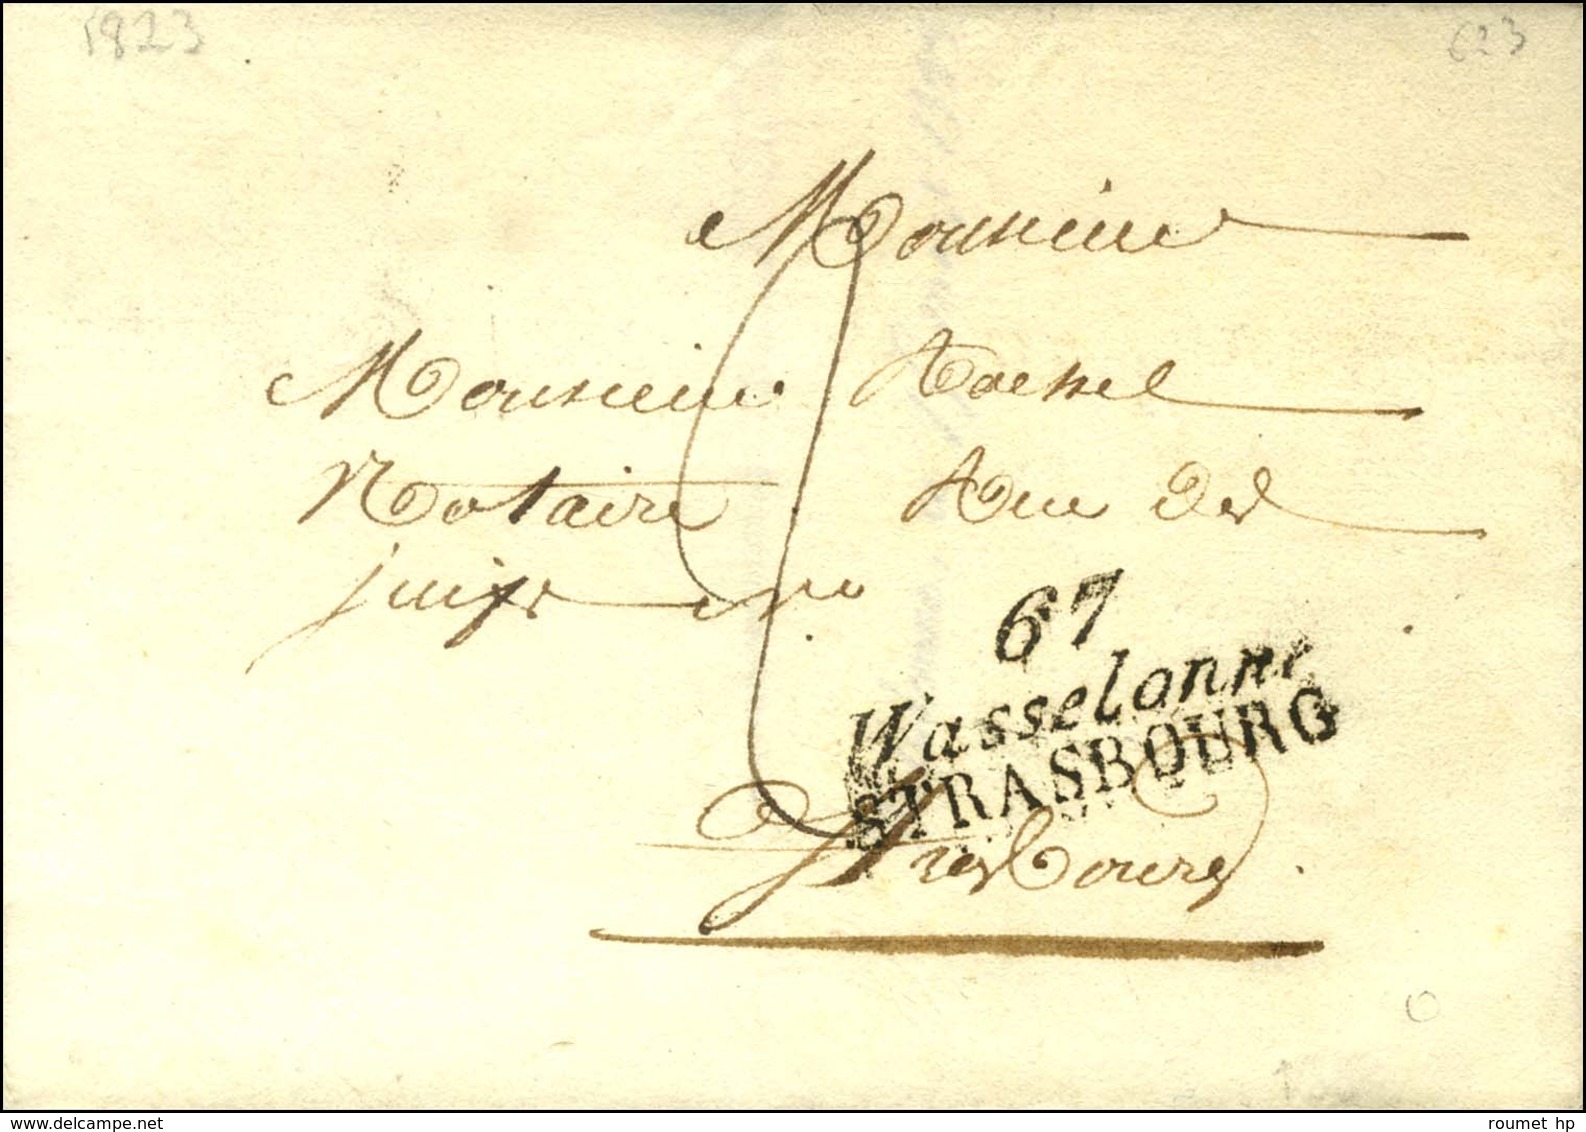 1823
623
Monsieur
Monsieur Roessel
Notaire Rue des
juifs
67
Wasselonne
STRASBOURG
Strasbourg
delcampe.net
roumet hp